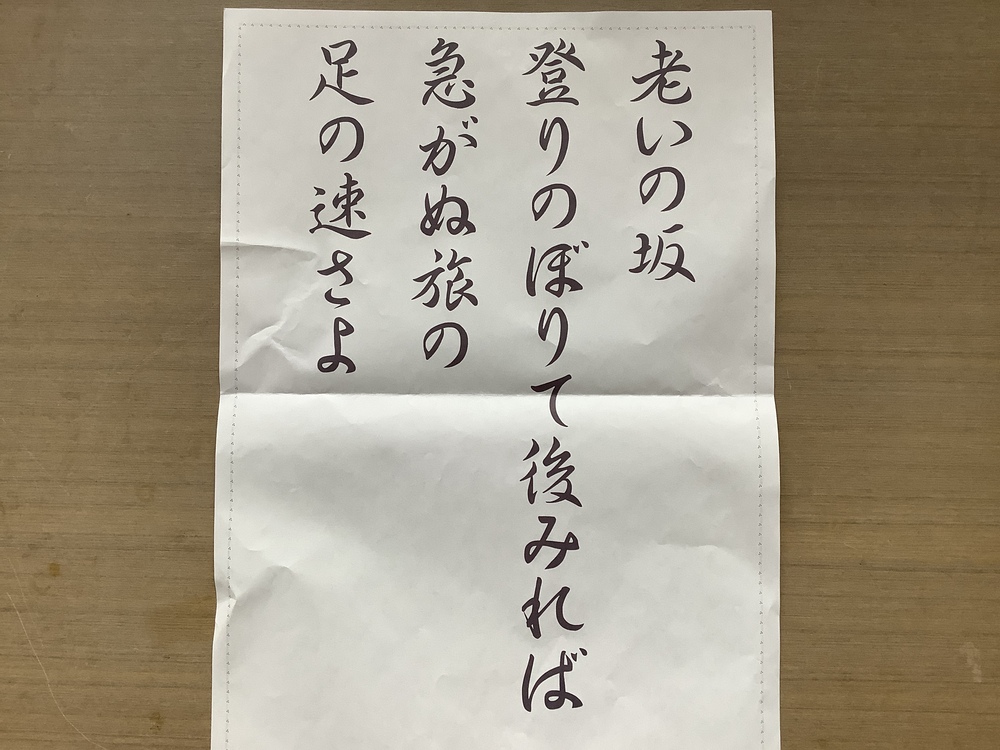 老いの坂
登りのぼりて後みれば
急がぬ旅の
足の速さよ